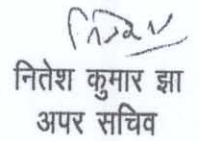 नितेश कुमार झा
अपर सचिव